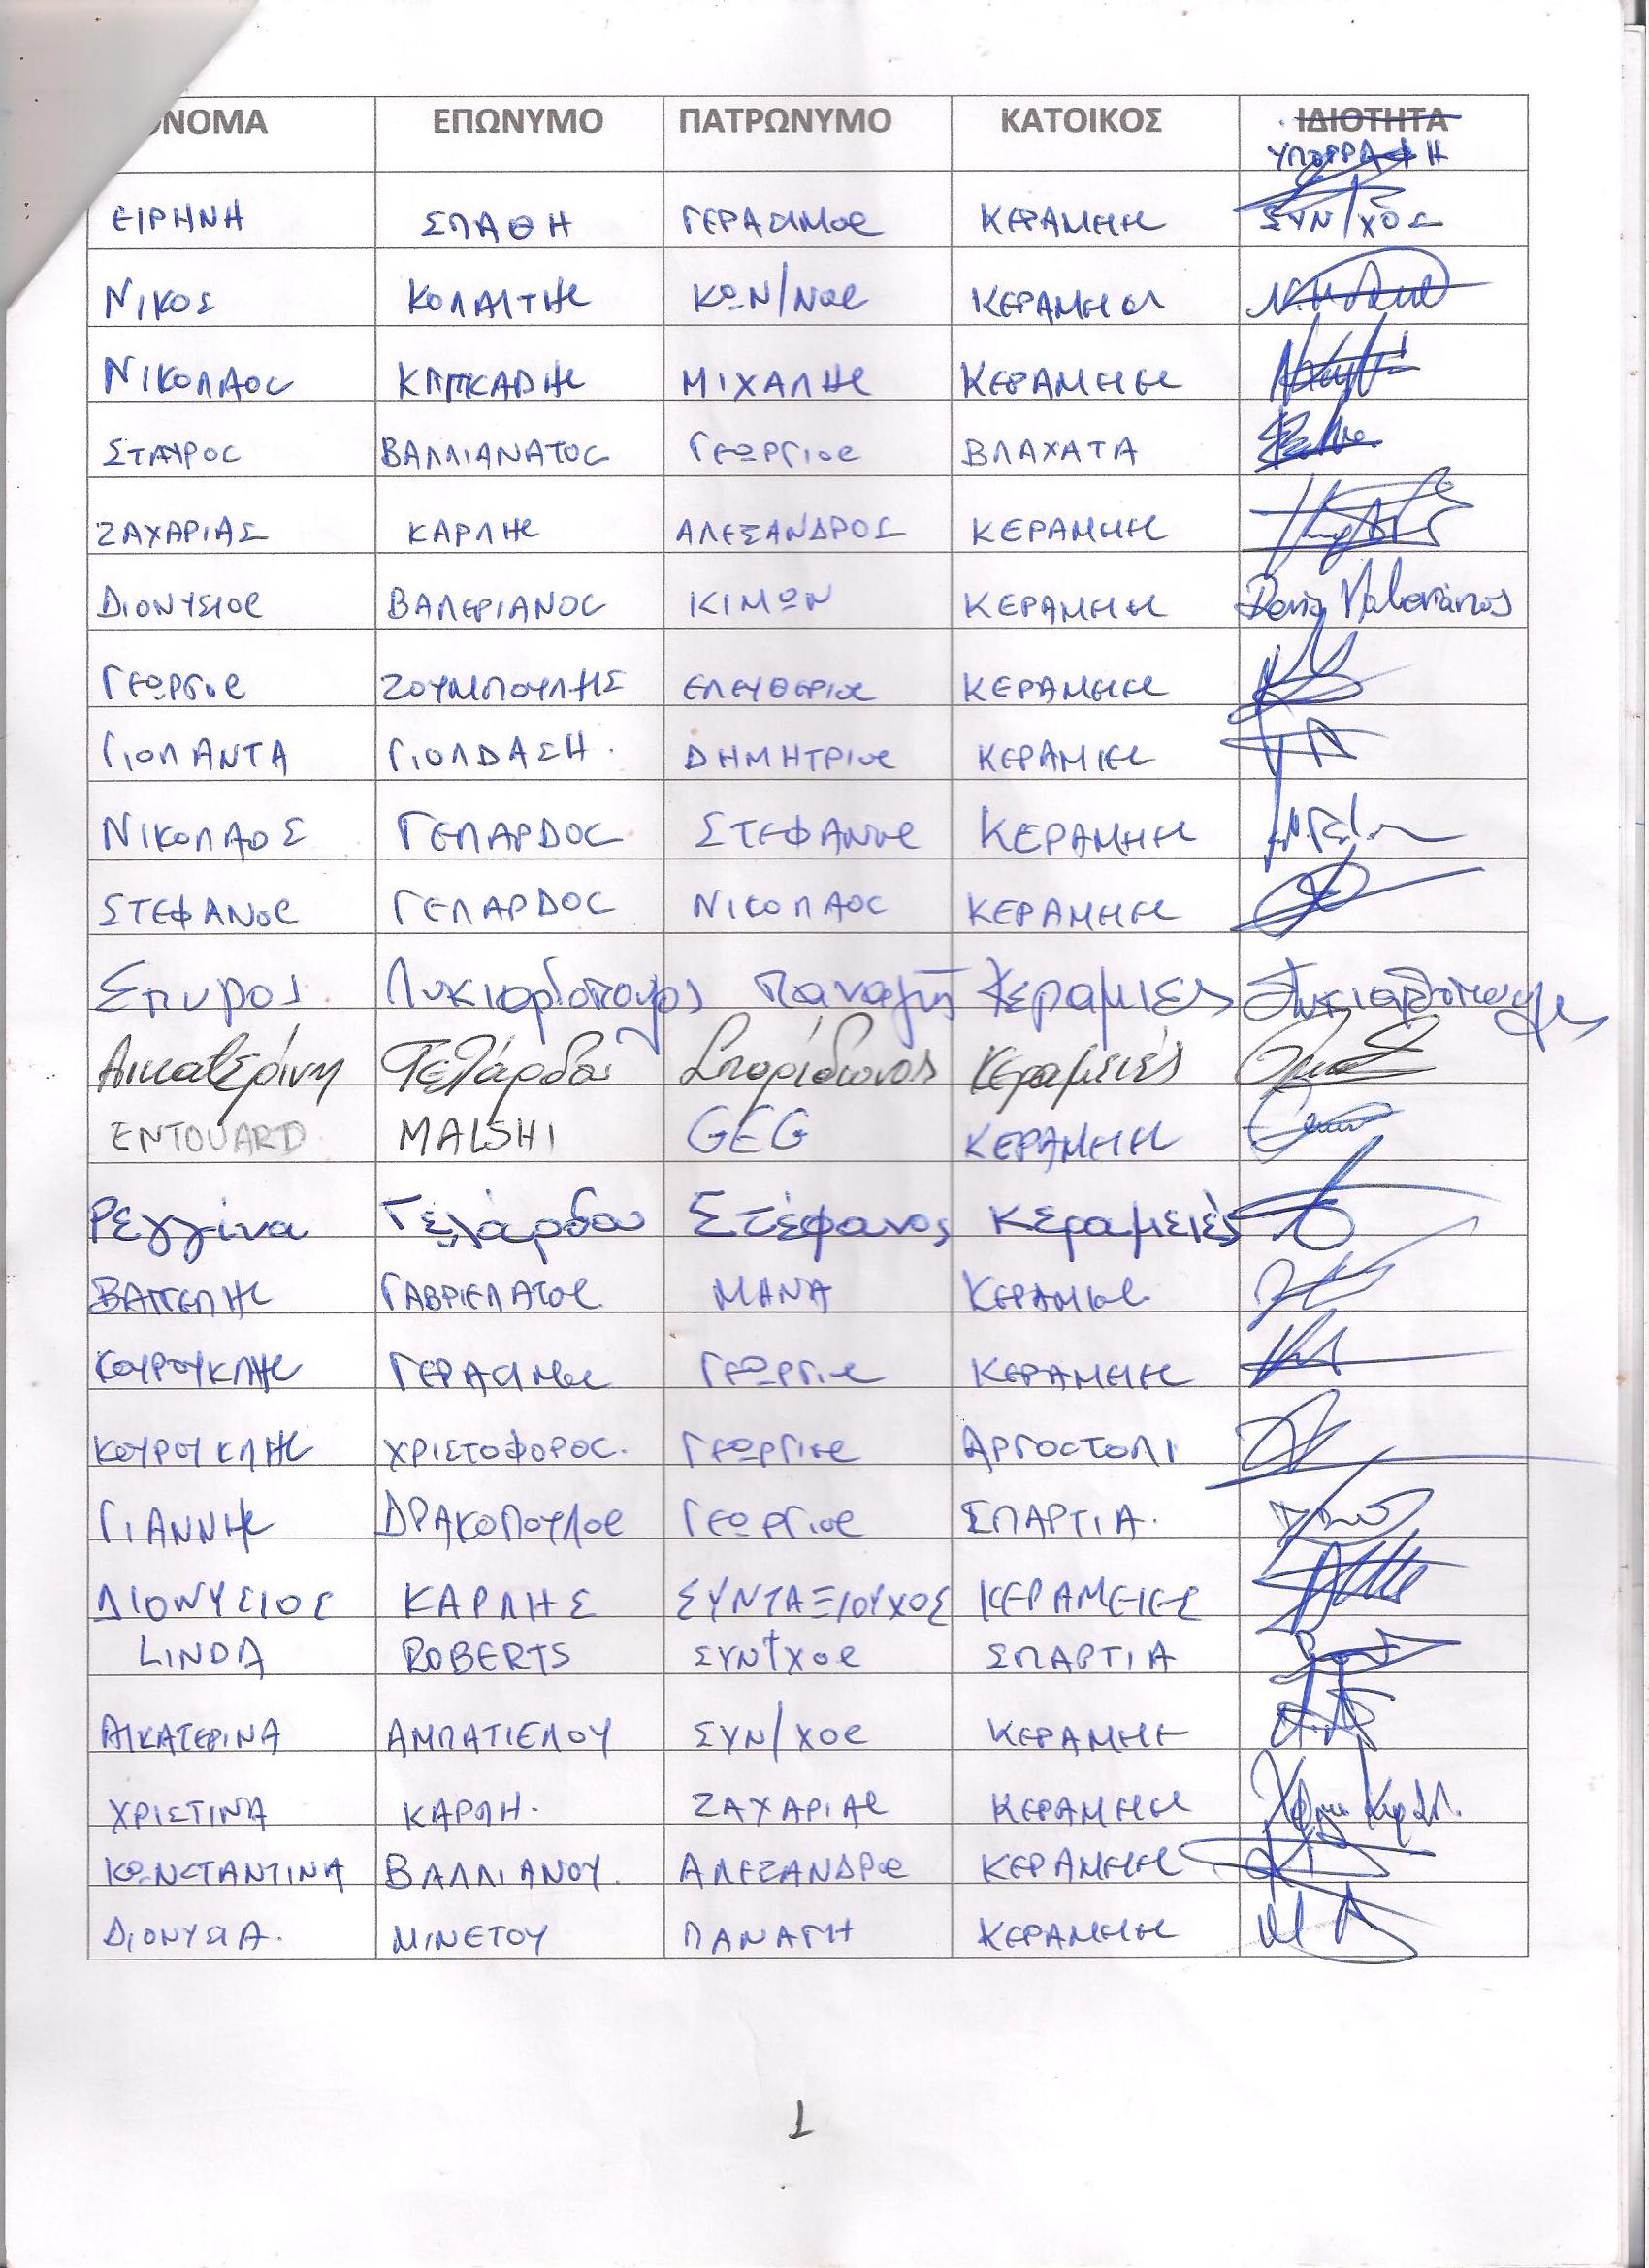 ΟΝΟΜΑ ΕΠΩΝΥΜΟ ΠΑΤΡΩΝΥΜΟ ΚΑΤΟΙΚΟΣ ΙΔΙΟΤΗΤΑ
ΥΠΟΓΡΑΦΗ
ΕΙΡΗΝΗ ΣΠΑΘΗ ΓΕΡΑΣΙΜΟΣ ΚΕΡΑΜΗΕΣ ΣΥΝ/ΧΟΣ
ΝΙΚΟΣ ΚΟΛΑΙΤΗΣ ΚΩΝ/ΝΟΣ ΚΕΡΑΜΗΕΣ
ΝΙΚΟΛΑΟΣ ΜΙΧΑΛΗΣ ΚΕΡΑΜΗΕΣ
ΣΤΑΥΡΟΣ ΒΑΛΛΙΑΝΑΤΟΣ ΓΕΩΡΓΙΟΣ ΒΛΑΧΑΤΑ
ΖΑΧΑΡΙΑΣ ΚΑΡΛΗΣ ΑΛΕΞΑΝΔΡΟΣ ΚΕΡΑΜΗΕΣ
ΔΙΟΝΥΣΙΟΣ ΒΑΛΕΡΙΑΝΟΣ ΚΙΜΩΝ ΚΕΡΑΜΗΕΣ
ΓΕΩΡΓΙΟΣ ΖΟΥΜΠΟΥΛΗΣ ΕΛΕΥΘΕΡΙΟΣ ΚΕΡΑΜΗΕΣ
ΓΙΟΛΑΝΤΑ ΓΙΟΛΔΑΣΗ. ΔΗΜΗΤΡΙΟΣ ΚΕΡΑΜΙΕΣ
ΝΙΚΟΛΑΟΣ ΓΕΛΑΡΔΟΣ ΣΤΕΦΑΝΟΣ ΚΕΡΑΜΗΕΣ
ΣΤΕΦΑΝΟΣ ΓΕΛΑΡΔΟΣ ΝΙΚΟΛΑΟΣ ΚΕΡΑΜΗΕΣ
Σπυρος Λυκιαρδοπουλος Παναγής Κεραμιες
Αικατερίνη Γελάρδου Σπυρίδωνος Κεραμειές
ENTOUARD MALSHI GEG ΚΕΡΑΜΗΕΣ
Ρεγγίνα Γελάρδου Στέφανος Κεραμειές
ΒΑΓΓΕΛΗΣ ΓΑΒΡΙΕΛΑΤΟΣ ΜΗΝΑ ΚΕΡΑΜΙΕΣ
ΚΟΥΡΟΥΚΛΗΣ ΓΕΡΑΣΙΜΟΣ ΓΕΩΡΓΙΟΣ ΚΕΡΑΜΗΕΣ
ΚΟΥΡΟΥΚΛΗΣ ΧΡΙΣΤΟΦΟΡΟΣ. ΓΕΩΡΓΙΟΣ ΑΡΓΟΣΤΟΛΙ
ΓΙΑΝΝΗΣ ΔΡΑΚΟΠΟΥΛΟΣ ΓΕΩΡΓΙΟΣ ΣΠΑΡΤΙΑ.
ΔΙΟΝΥΣΙΟΣ ΚΑΡΛΗΣ ΣΥΝΤΑΞΙΟΥΧΟΣ ΚΕΡΑΜΕΙΕΣ
LINDA ROBERTS ΣΥΝ/ΧΟΣ ΣΠΑΡΤΙΑ
ΑΙΚΑΤΕΡΙΝΑ ΑΜΠΑΤΙΕΛΟΥ ΣΥΝ/ΧΟΣ ΚΕΡΑΜΗΕ
ΧΡΙΣΤΙΝΑ ΚΑΡΛΗ. ΖΑΧΑΡΙΑΣ ΚΕΡΑΜΗΕΣ
ΚΩΝΣΤΑΝΤΙΝΑ ΒΑΛΛΙΑΝΟΥ. ΑΛΕΞΑΝΔΡΟΣ ΚΕΡΑΜΗΕΣ
ΔΙΟΝΥΣΙΑ. ΜΙΝΕΤΟΥ ΠΑΝΑΓΗ ΚΕΡΑΜΗΕΣ
1